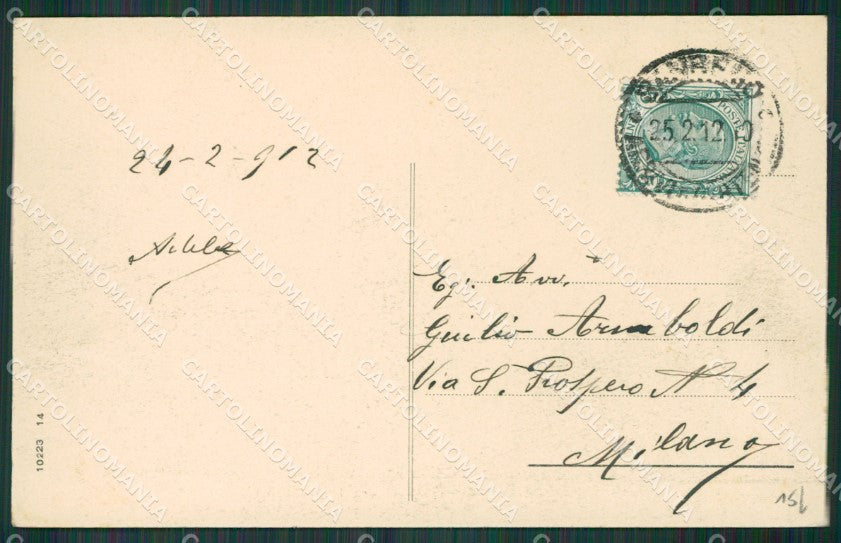 24-2-912
SANREMO
25.2.12
Eg. Avv.
Giulio Arnaboldi
Via S. Prospero N 4
Milano
10223 14
15/
CARTOLINOMANIA